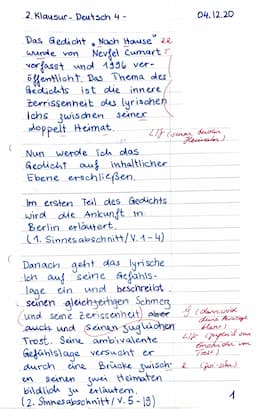 2. Klausur - Deutsch 4 - 04.12.20
Das Gedicht „Nach Hause" ZZ
wurde von Nevfel Cumart T
verfasst und 1996 ver-
öffentlicht. Das Thema des
Gedichts ist die innere
Zerrissenheit des lyrischen
Ichs zwischen seiner
doppelt Heimat.
Nun werde ich das
Gedicht auf inhaltlicher
Ebene erschließen.
Im ersten Teil des Gedichts
wird die Ankunft in
Berlin erläutert.
(1. Sinnesabschnitt / V. 1-4)
Danach geht das lyrische
Ich auf seine Gefühls-
lage ein und beschreibt
seinen gleichzeitigen Schmerz
und seine Zerissenheit, aber
auch und seinen zugleichen
Trost. Seine ambivalente
Gefühlslage versucht er
durch eine Brücke zwisch-
en seinen zwei Heimaten
bildlich zu erläutern.
(2. Sinnesabschnitt / V. 5-19)
1